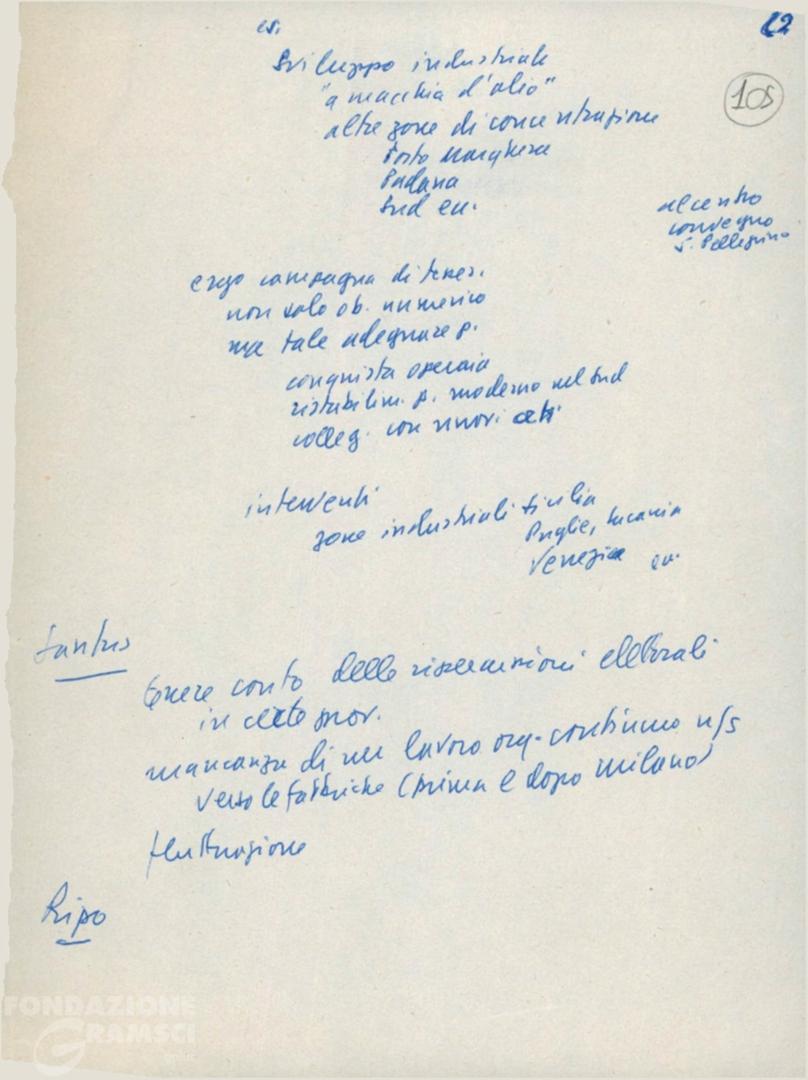 12
105
es.
Sviluppo industriale
"a macchia d'olio"
altre zone di concentrazione
Porto Marghera
Padana
Sud ecc.
al centro
convegno
S. Pellegrino
ergo campagna di tesser.
non solo ob. numerico
ma tale adeguare p.
conquista operaia
ristabilim. p. moderno nel Sud
colleg. con nuovi ceti
interventi
zone industriali Sicilia
Puglie, Lucania
Venezia ecc.
Santus
tenere conto delle ripercussioni elettorali
in certe prov.
mancanza di un lavoro org. continuo n/s
verso le fabbriche (prima e dopo Milano)
fluttuazione
Ripo
FONDAZIONE
GRAMSCI